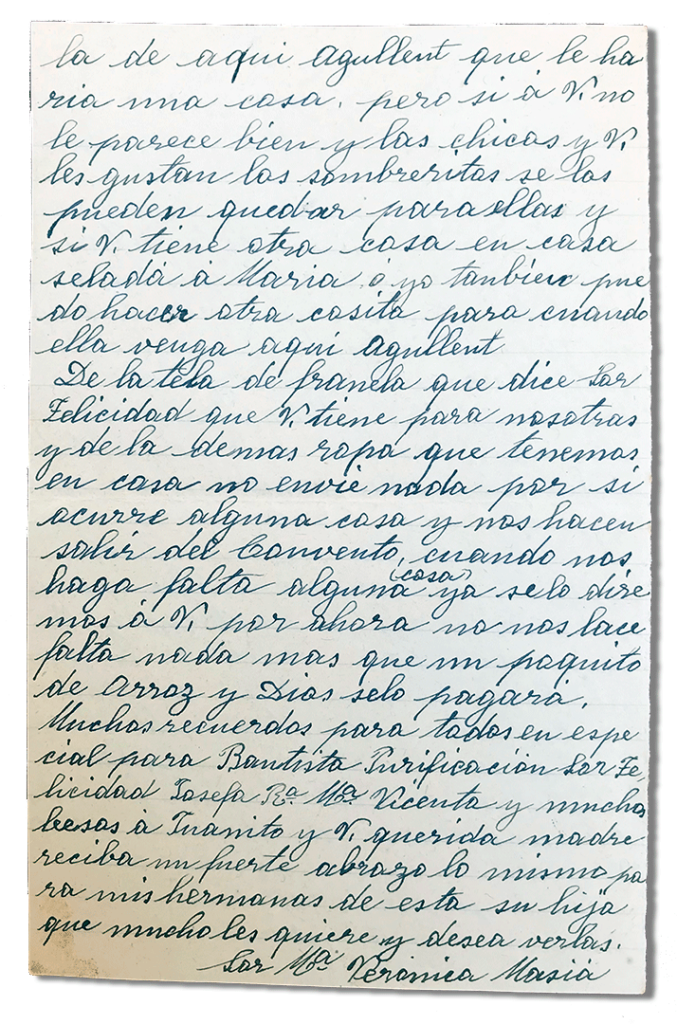 la de aqui Agullent que le ha
ria una cosa. pero si á V. no
le parece bien y las chicas y V.
les gustan los sombreritos se los
pueden quedar para ellas y
si V. tiene otra cosa en casa
seladá á Maria ó yo tanbien pue
do hacer otra cosita para cuando
ella venga aqui Agullent
De la tela de franela que dice Sor
Felicidad que V. tiene para nosotras
y de la demas ropa que tenemos
en casa no envie nada por si
ocurre alguna cosa y nos hacen
salir del Convento, cuando nos
haga falta alguna (cosa) ya selo dire
mos á V. por ahora no nos hace
falta nada mas que un poquito
de Arroz y Dios selo pagará.
Muchos recuerdos para todos en espe
cial para Bautista Purificación Sor Fe,
licidad Josefa Rª. Mª Vicenta y muchos
besos á Juanito y V. querida madre
reciba un fuerte abrazo lo mismo pa
ra mis hermanas de esta su hija
que mucho les quiere y desea verlas.
Sor Mª Verónica Masiá